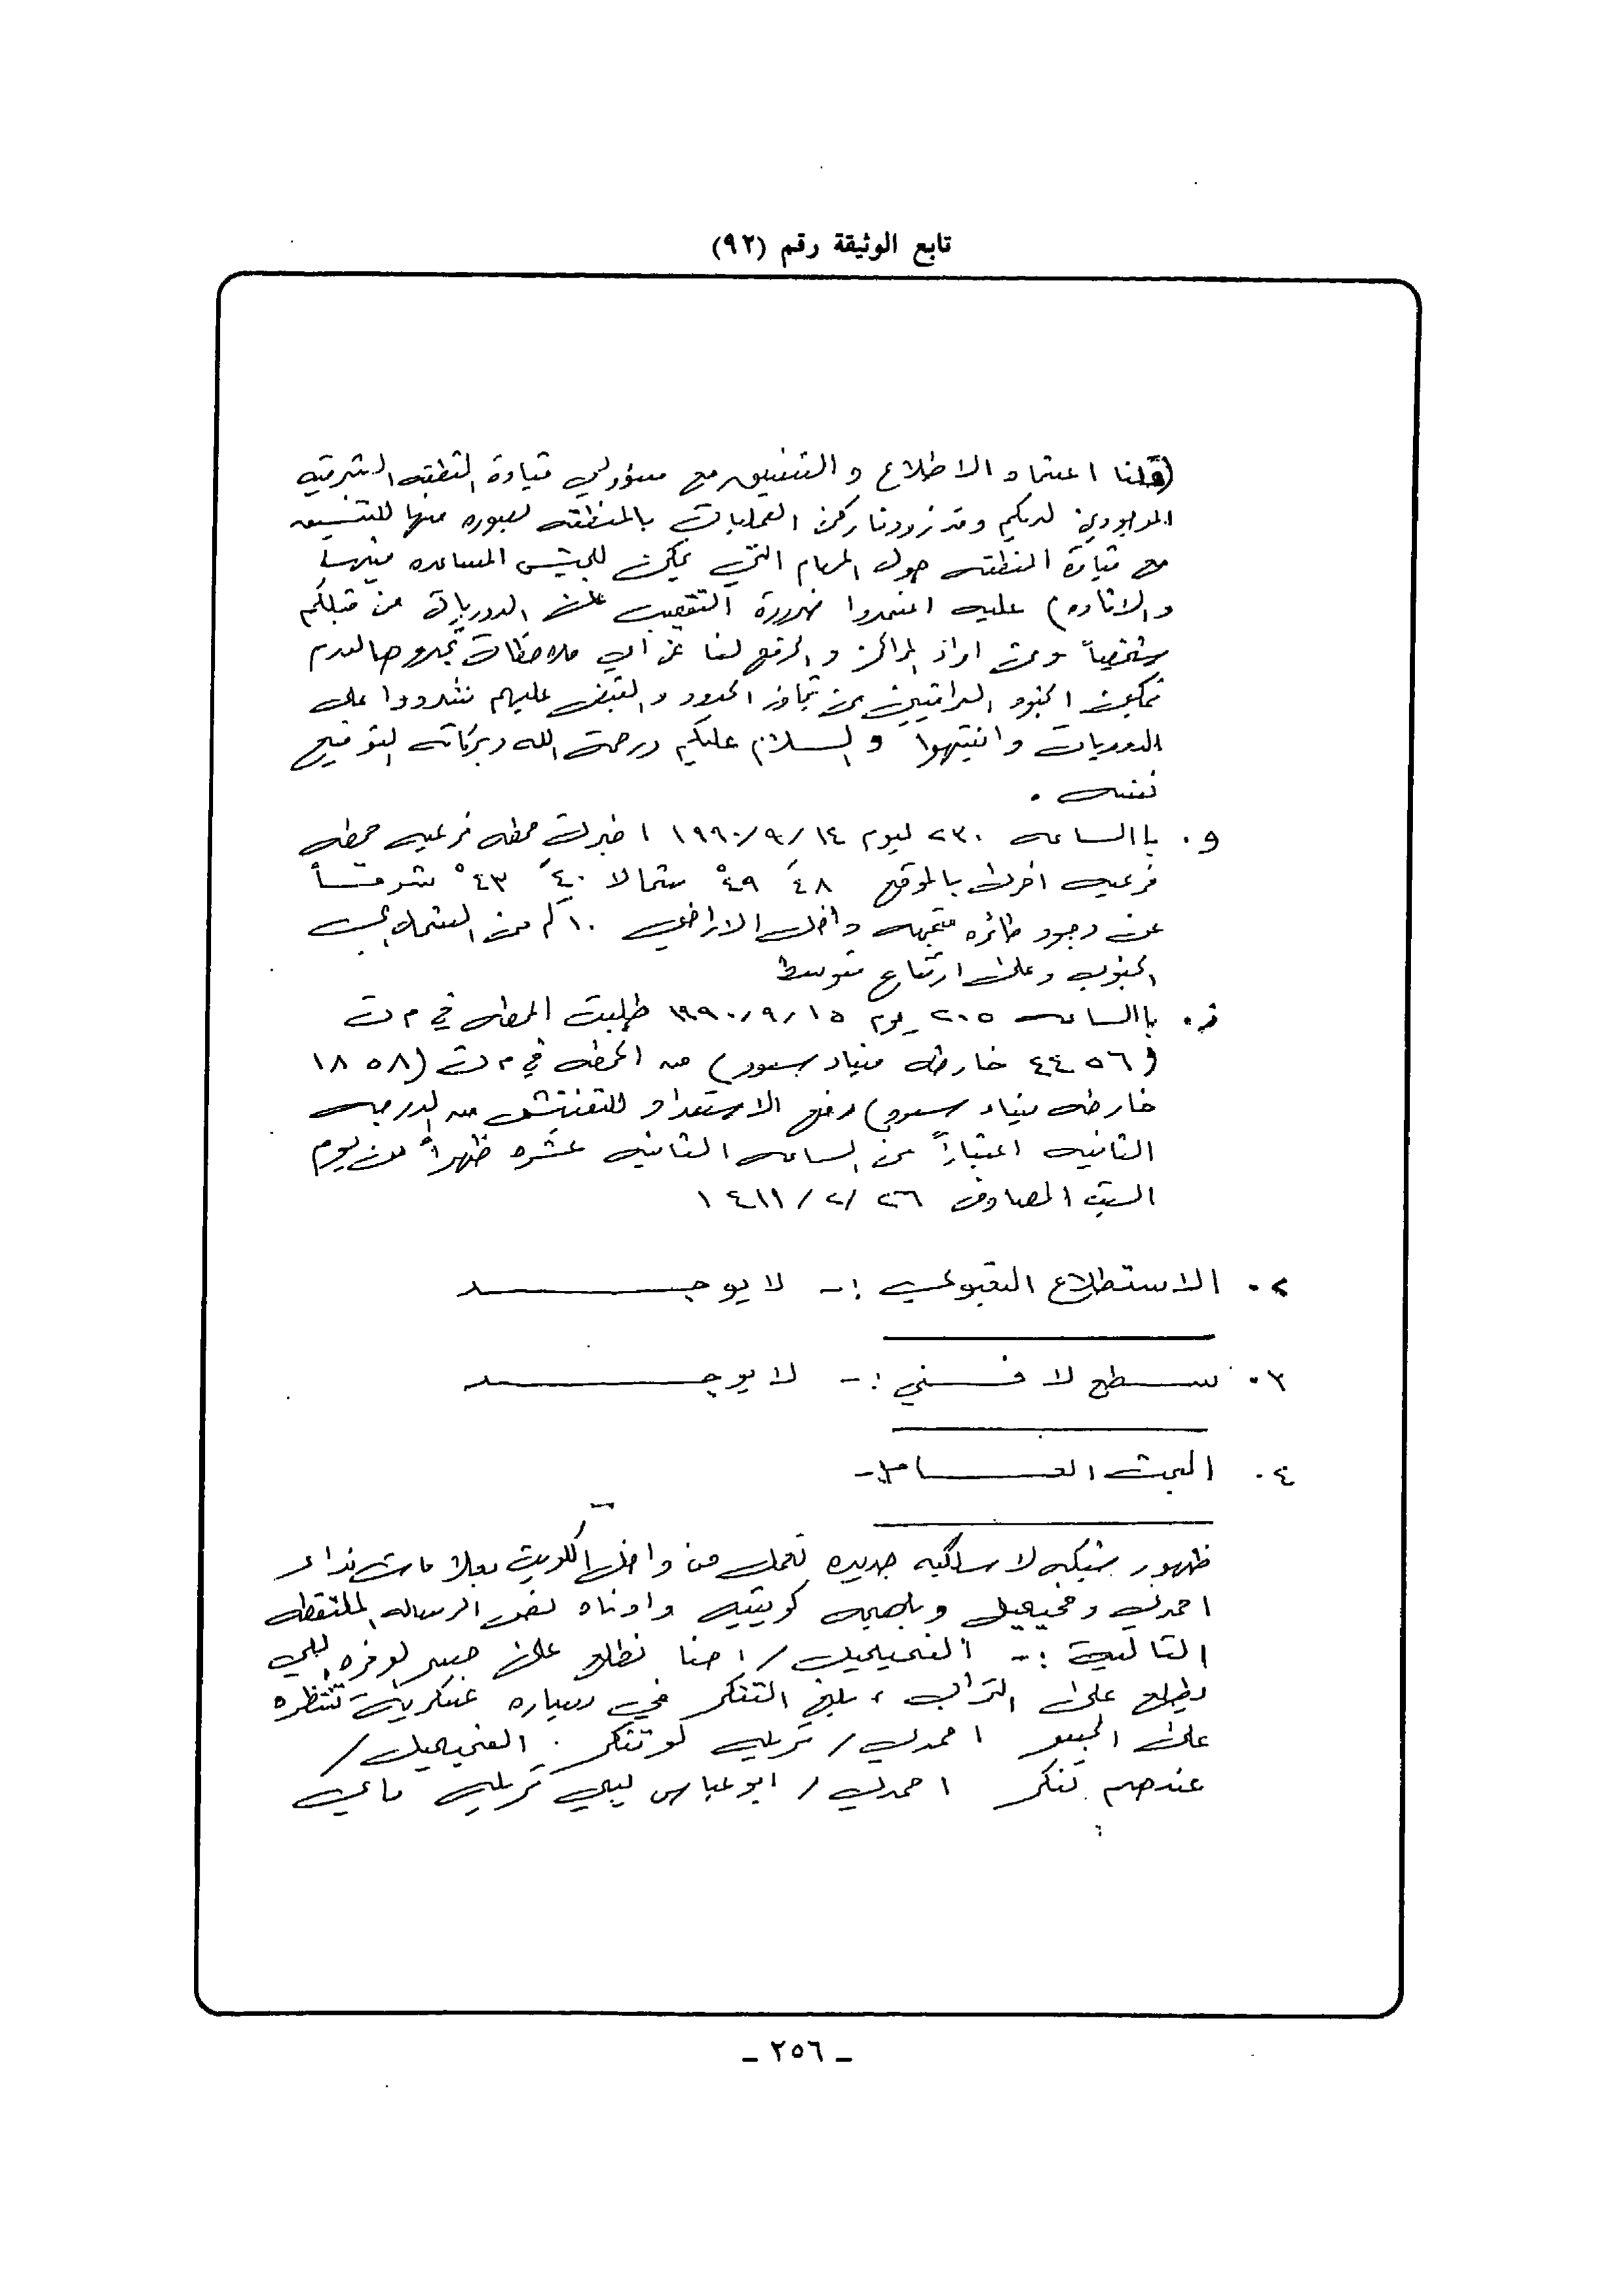 تابع الوثيقة رقم (٩٢)
(قلنا اعتماد الاطلاع و التنسيق مع مسؤولي قيادة المنطقه الشرقيه
الموجودين لديكم وقد زودنا ركن العمليات بالمنطقه بصوره منها للتنسيق
مع قيادة المنطقه حول المهام التي يمكن للجيش المساعده فيها
والافاده) عليه اعتمدوا ضرورة التعقيب على الدوريات من قبلكم
شخصياً ومن افراد المراكز والرفع لنا عن اي ملاحظات تجدوها لعدم
تمكين الجنود العراقيين من تجاوز الحدود والقبض عليهم شددوا على
الدوريات وانتبهوا والسلام عليكم ورحمة الله وبركاته التوقيع
نفسه .
و . باالساعه ٢٣٠ ليوم ١٩٩٠/٩/١٤ اخبرت محطه فرعيه محطه
فرعيه اخرى بالموقع ٤٨َ ٤٩ْ شمالا ٤٠َ ٤٣ْ شرقاً
عن وجود طائره متجهه داخل الاراضي ١٠كم من الشمال الى
الجنوب وعلى ارتفاع متوسط
ز . باالساعه ٢٠٥ يوم ١٩٩٠/٩/١٥ طلبت المحطه في م ت
(٤٤٥٦ خارطه ميناء سعود) من المحطه في م ت (١٨٥٨
خارطه ميناء سعود) رفع الاستعداد للتفتيش من الدرجه
الثانيه اعتباراً من الساعه الثانيه عشره ظهراً من يوم
السبت المصادف ١٤١١/٢/٢٦
٢ . الاستطلاع التعبوي :- لا يوجد
٣ . سطع لا فني :- لا يوجد
٤ . البحث العام :-
ظهور شبكه لاسلكيه جديده تعمل من داخل الكويت بعلامات نداء
احمدي وفحيحيل وبلهجه كويتيه وادناه نص الرساله الملتقطه
التاليه :- الفحيحيل / احنا نطلع على جسر لوفره اللي
يطلع على التراب ، بلغ التنكر في سياره عسكرية تنتظره
على الجسر احمدي / تريلي لو تنكر . الفحيحيل /
عندهم تنكر احمدي / ابو عباس يبي تريلي ماعي
- ٢٥٦ -